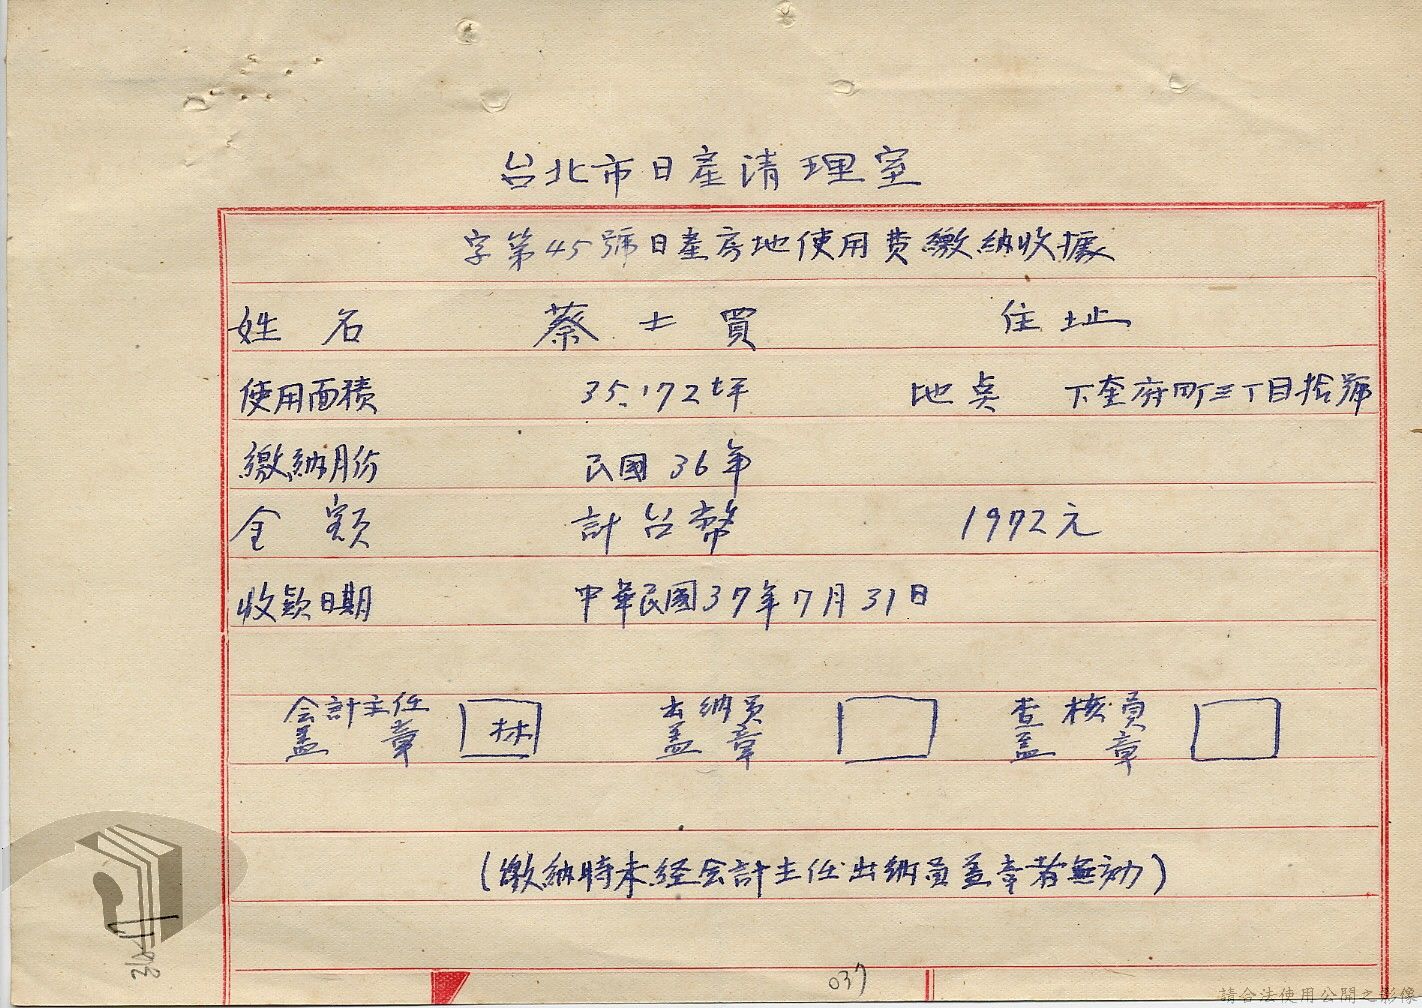 台北市日產清理室
字第45號日產房地使用费繳納收據
姓 名 蔡士買 住址
使用面積 35.172坪 地奌 下奎府町三丁目拾號
繳納月份 民國36年
金額 計台幣 1972元
收款日期 中華民國37年7月31日
会計主任 出納員 查核員
盖章 林 盖章 盖章
(繳納時未経会計主任出納員盖章者無効)
037
請合法使用公開之影像